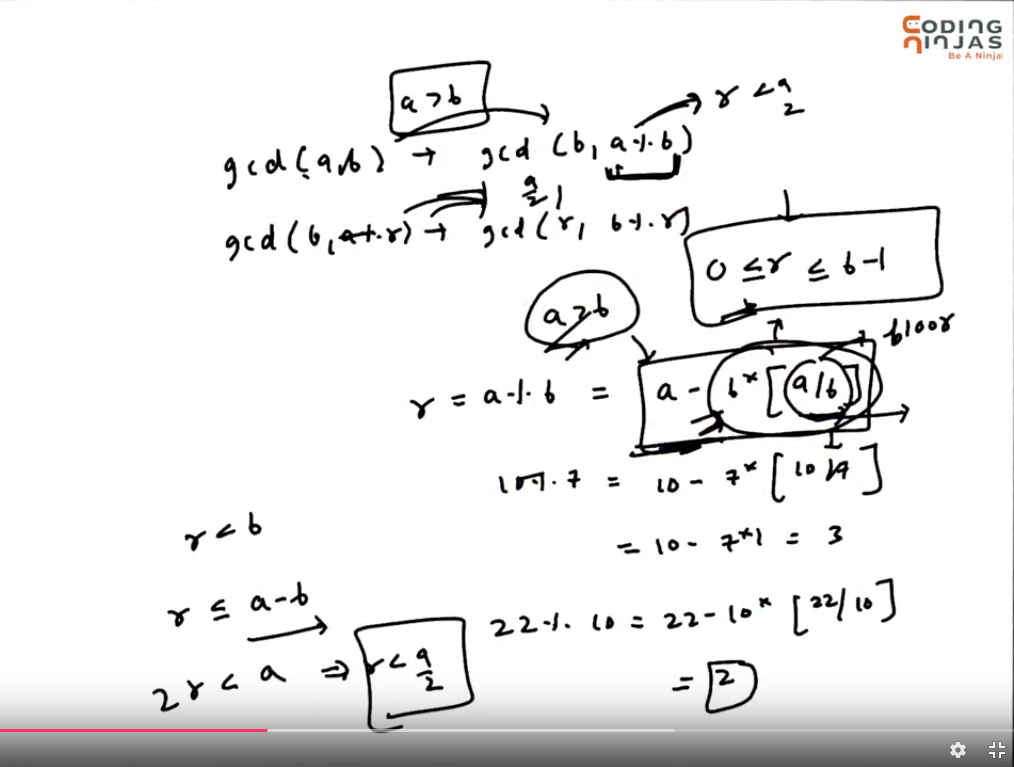 CODING
NINJAS
Be A Ninja
a > b
gcd(a,b) → gcd (b, a % b) → r < a/2
a/2
gcd(b, r) → gcd(r, b % r)
0 ≤ r ≤ b-1
a > b
floor
r = a % b = a - b* [a/b]
10 % 7 = 10 - 7* [10/7]
= 10 - 7*1 = 3
r < b
r ≤ a-b
22 % 10 = 22 - 10* [22/10]
2r < a ⇒ r < a/2
= 2